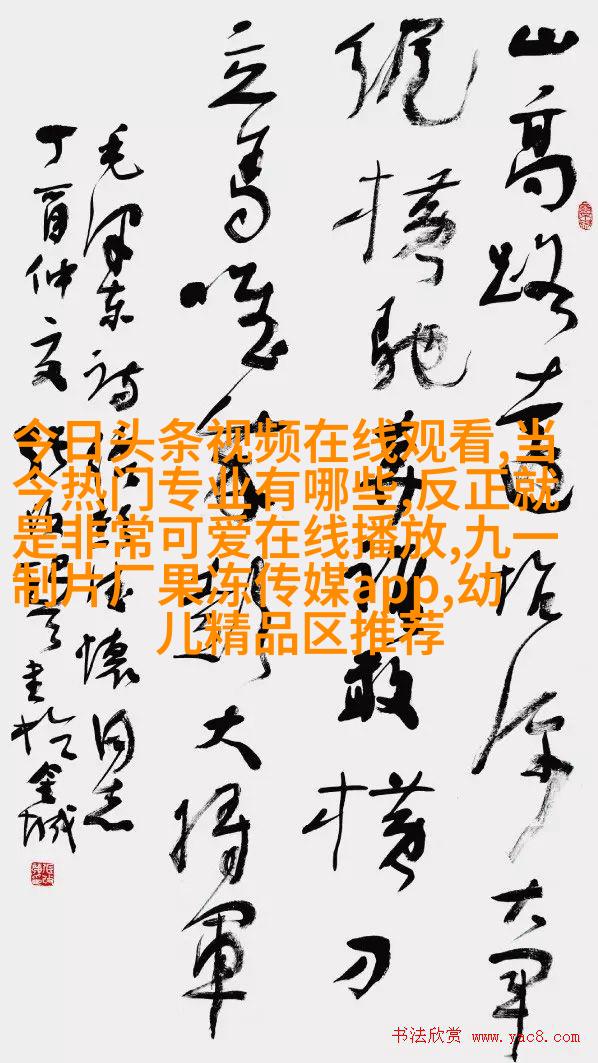 山高路遠坑深大軍
縱橫馳奔誰敢橫刀
立馬唯我彭大將軍
毛澤東詩 德懷同志
丁酉仲夏 書於金城
今日头条视频在线观看,当
今热门专业有哪些,反正就
是非常可爱在线播放,九一
制片厂果冻传媒app,幼
儿精品区推荐
书法欣赏 www.yac8.com